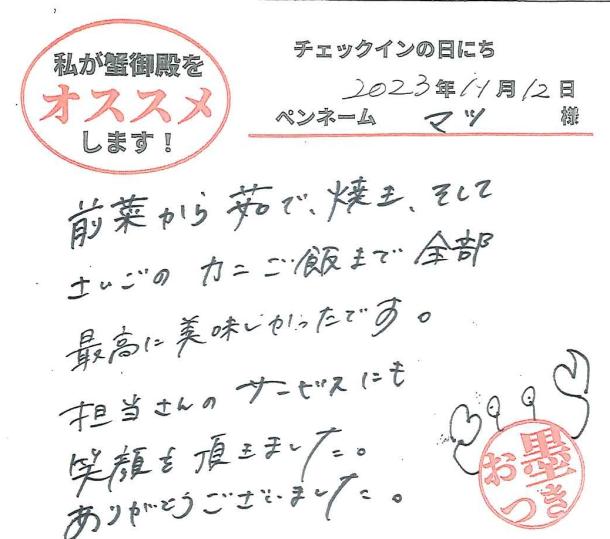 私が蟹御殿を
オススメ
します！
チェックインの日にち
2023年11月12日
ペンネーム マツ 様
前菜から茹で、焼き、そして
さいごのカニご飯まで全部
最高に美味しかったです。
担当さんのサービスにも
笑顔を頂きました。
ありがとうございました。
お墨
つき